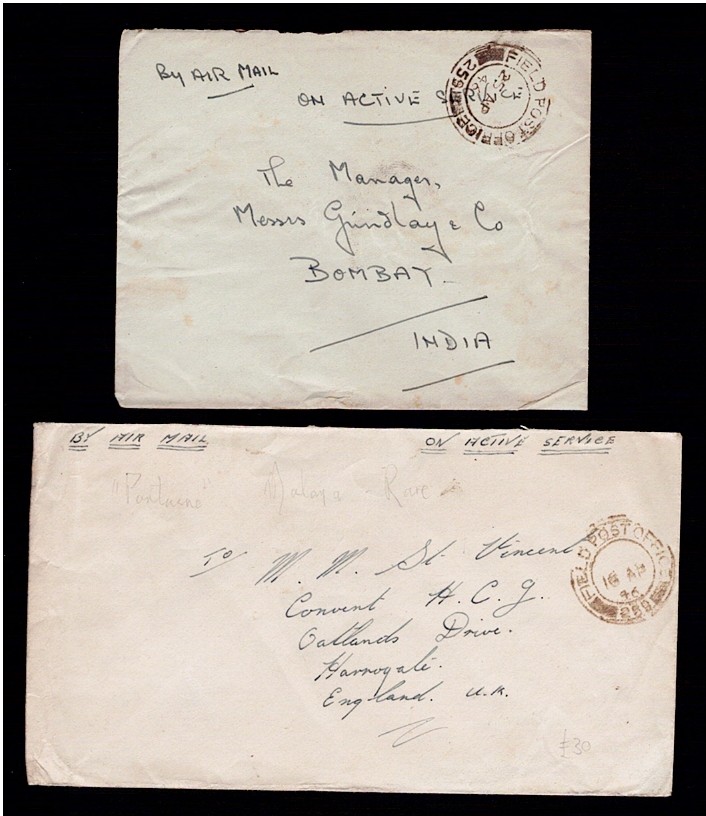 By AIR MAIL
ON ACTIVE SERVICE
FIELD POST OFFICE
259
The Manager,
Messrs Grindlay & Co
BOMBAY
INDIA
BY AIR MAIL
ON ACTIVE SERVICE
Malaya Rare
To M. M. St. Vincent
Convent H. C. J.
Oatlands Drive.
Harrogate.
England. U.K.
FIELD POST OFFICE
16 AP
46
259
£30